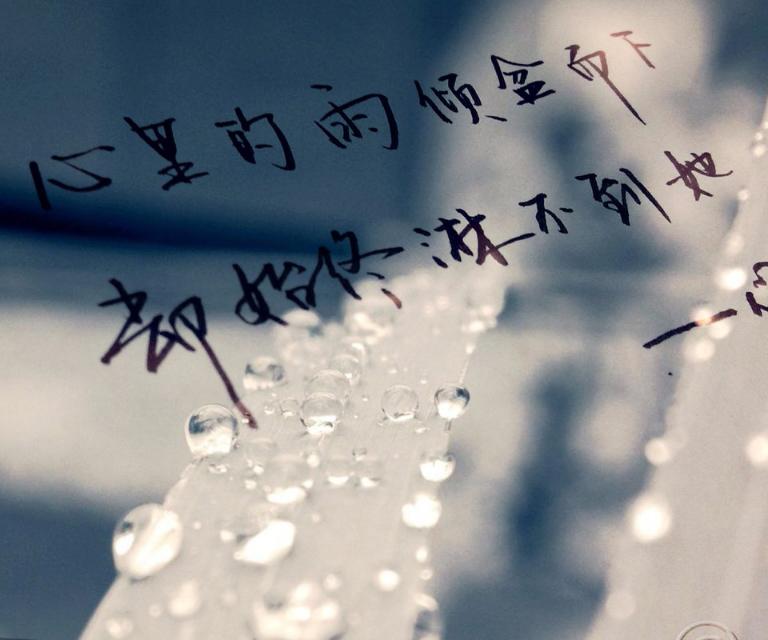 心里的雨倾盆而下
却始终淋不到她
一